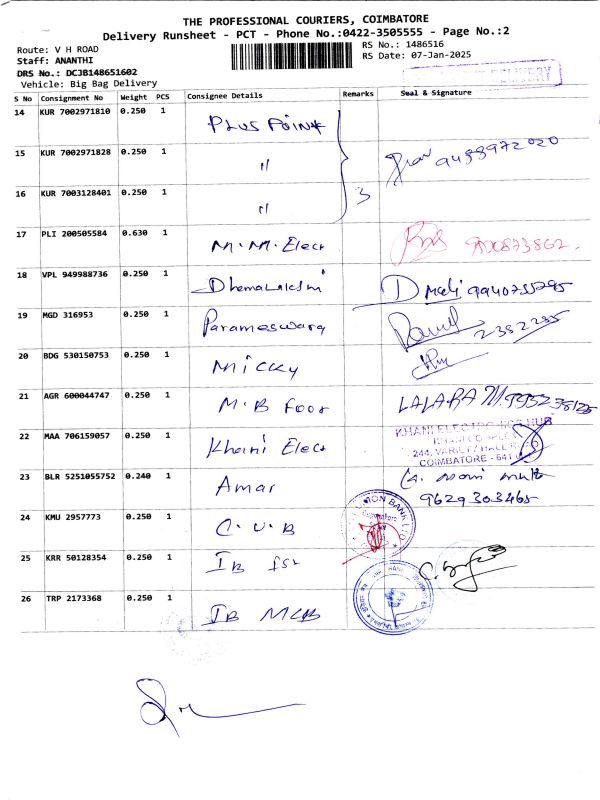 THE PROFESSIONAL COURIERS, COIMBATORE
Delivery Runsheet - PCT - Phone No.:0422-3505555 - Page No.:2
Route: V H ROAD
RS No.: 1486516
Staff: ANANTHI
RS Date: 07-Jan-2025
DRS No.: DCJB148651602
DELIVERY
Vehicle: Big Bag Delivery
S No Consignment No Weight PCS Consignee Details Remarks Seal & Signature
14 KUR 7002971810 0.250 1 PLUS Point
15 KUR 7002971828 0.250 1 〃 9488972020
16 KUR 7003128401 0.250 1 〃 3
17 PLI 200505584 0.630 1 M.M. Elect
18 VPL 949988736 0.250 1 DhanaLakshmi 9940735795
19 MGD 316953 0.250 1 Parameswara 2382285
20 BDG 530150753 0.250 1 Micky
21 AGR 600044747 0.250 1 M.B Foot LALARAM.
22 MAA 706159057 0.250 1 Khani Elect
KHANI ELECTRO HUB
KHANI COMPLEX
244, VARIETY HALL R
COIMBATORE - 641
23 BLR 5251055752 0.240 1 Amar
9629303465
24 KMU 2957773 0.250 1 C.U.B
UNION BANK LTD
25 KRR 50128354 0.250 1 IB
26 TRP 2173368 0.250 1 IB